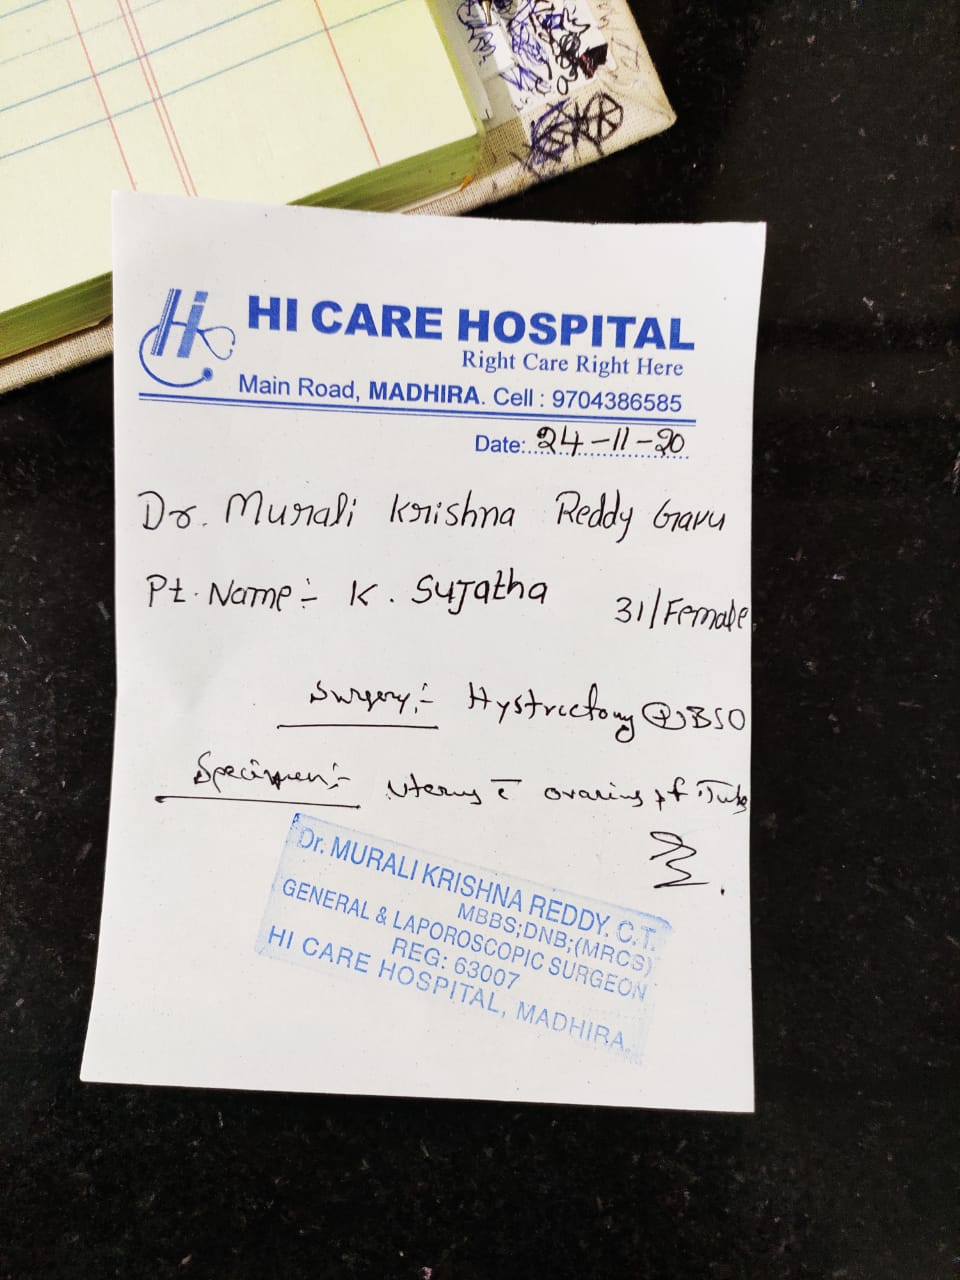 Hi
HI CARE HOSPITAL
Right Care Right Here
Main Road, MADHIRA. Cell : 9704386585
Date:..24-11-20
Dr. Murali Krishna Reddy Garu
Pt. Name:- K. Sujatha 31/Female
Surgery:- Hystrectomy BSO
Specimen:- Uterus c̄ ovaries
Dr. MURALI KRISHNA REDDY. C.T.
MBBS;DNB;(MRCS)
GENERAL & LAPOROSCOPIC SURGEON
REG: 63007
HI CARE HOSPITAL, MADHIRA.